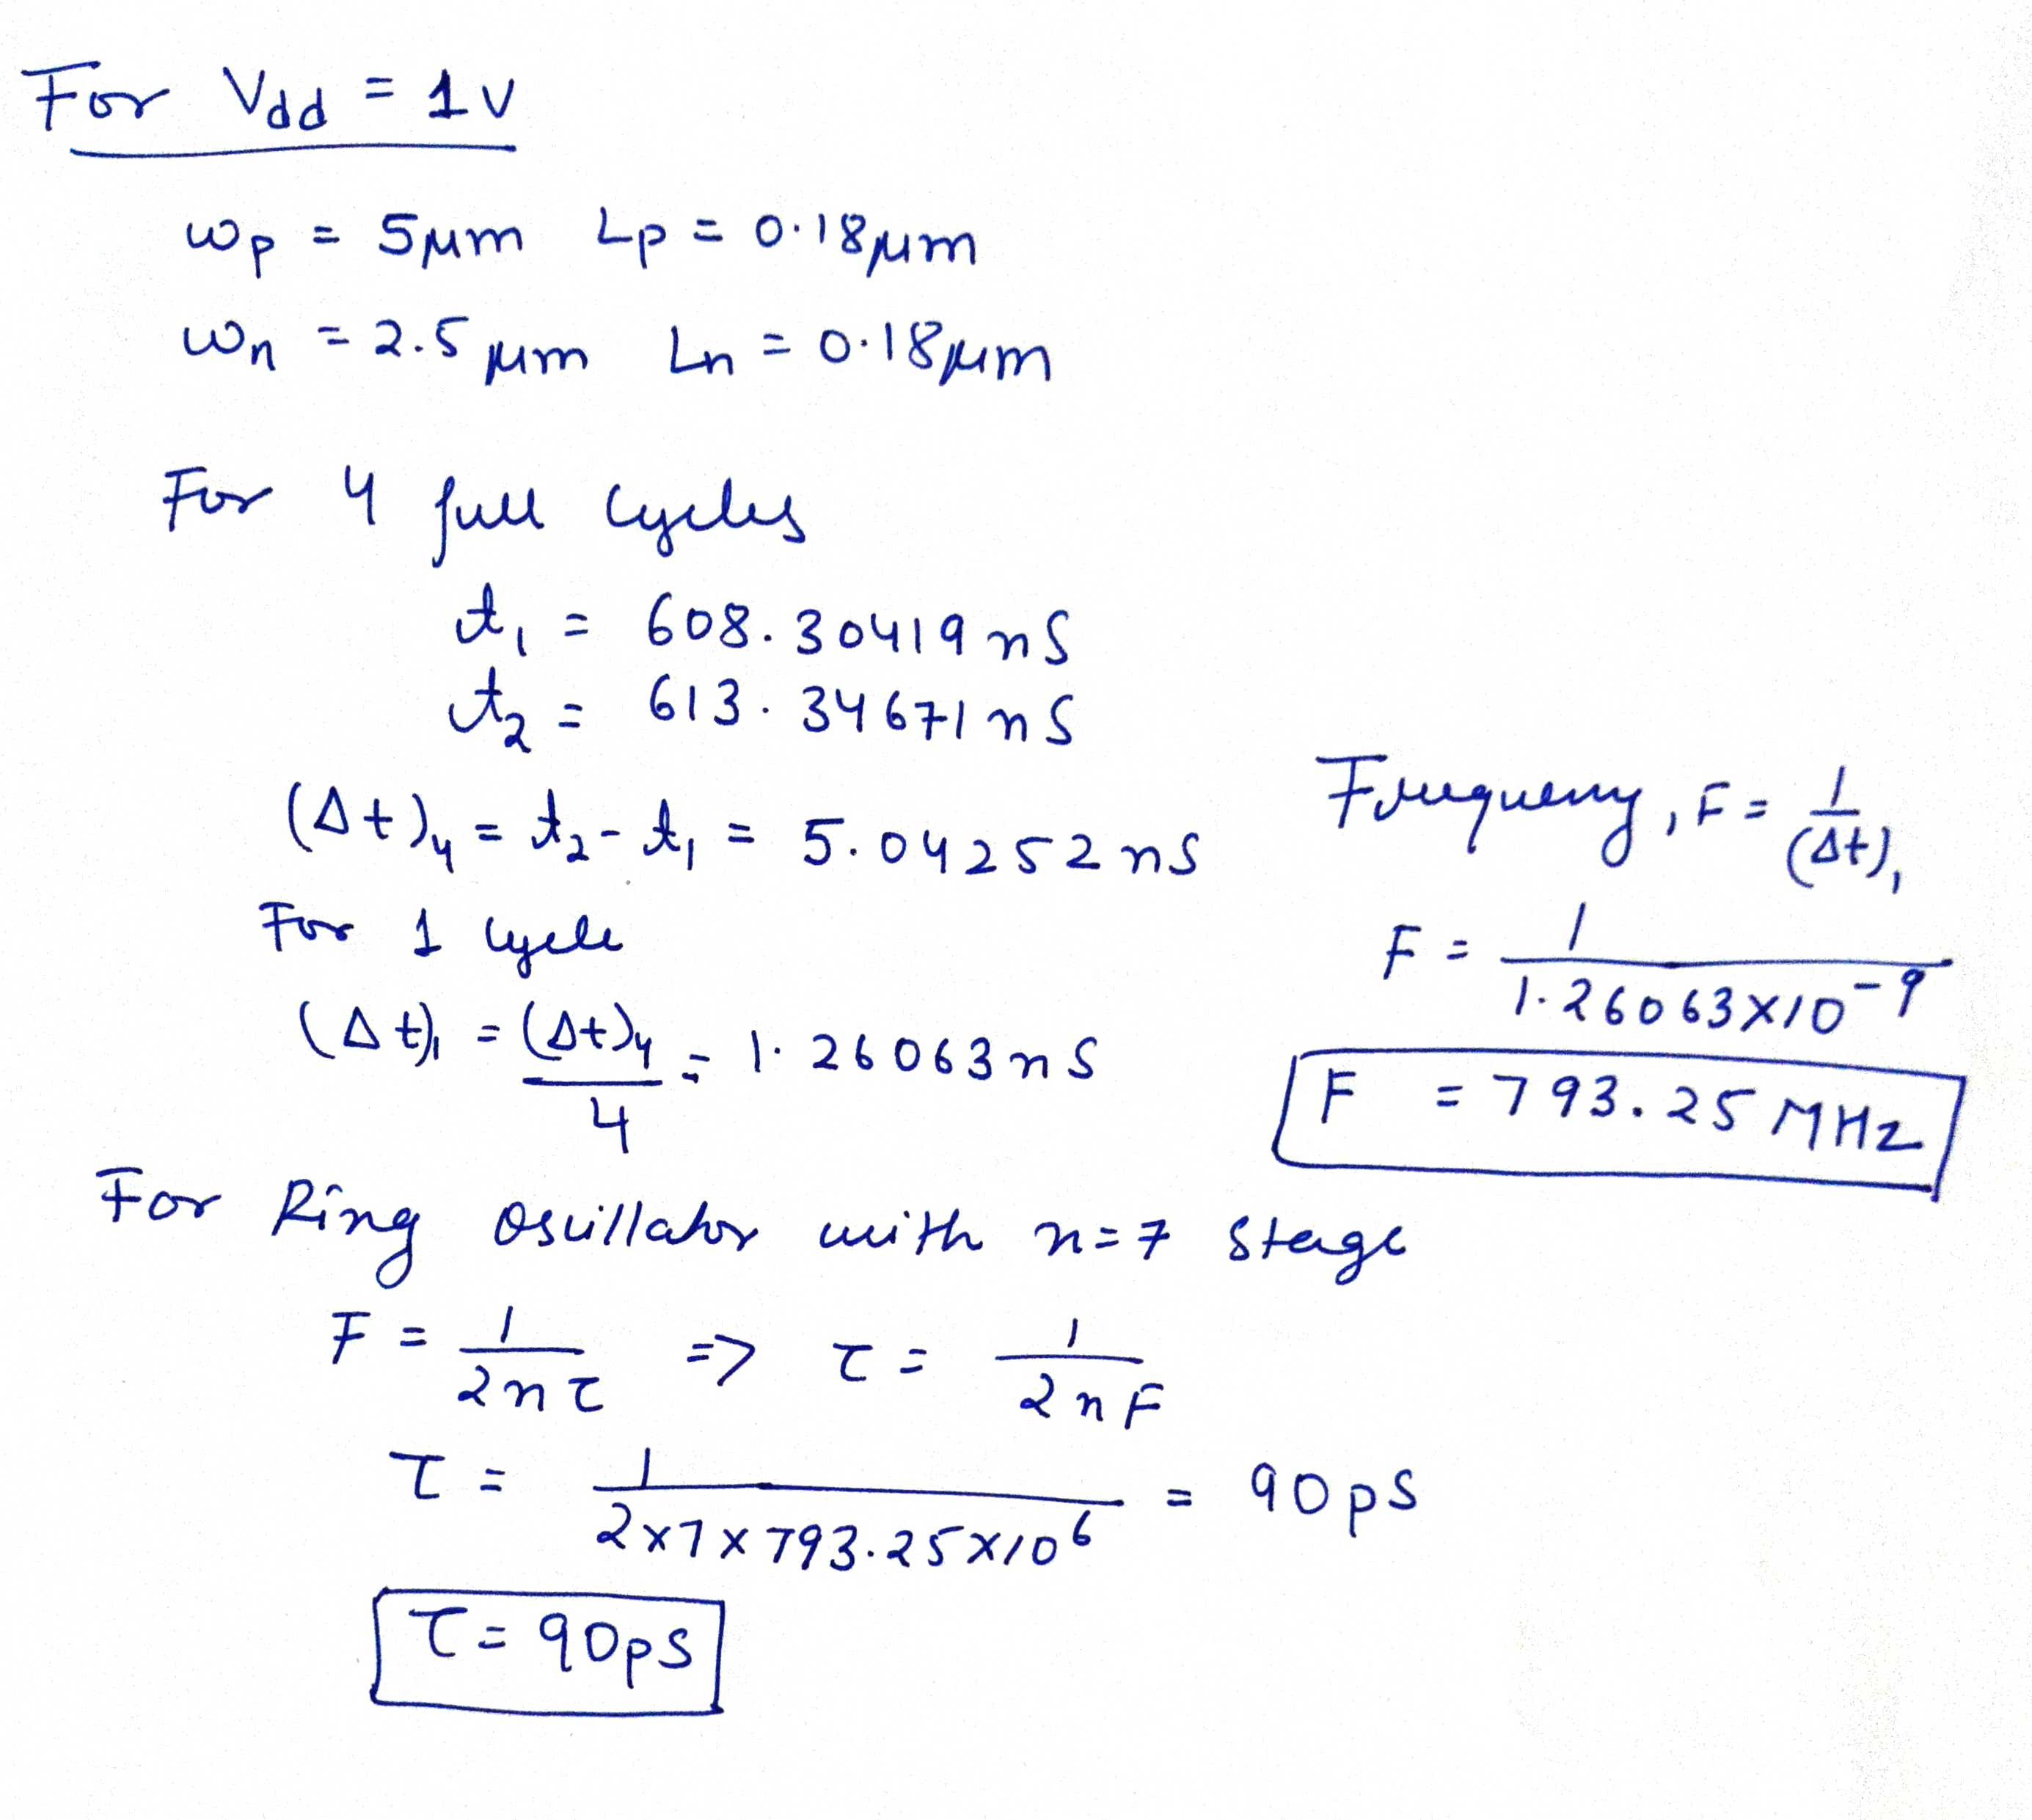 For Vdd = 1V
Wp = 5μm Lp = 0.18μm
Wn = 2.5μm Ln = 0.18μm
For 4 full cycles
t₁ = 608.30419 nS
t₂ = 613.34671 nS
(Δt)₄ = t₂ - t₁ = 5.04252 ns
For 1 cycle
(Δt)₁ = (Δt)₄/4 = 1.26063 nS
Frequency, F = 1/(Δt)₁
F = 1/1.26063×10⁻⁹
F = 793.25 MHz
For Ring oscillator with n=7 stage
F = 1/2nτ => τ = 1/2nF
τ = 1/2×7×793.25×10⁶ = 90ps
τ = 90ps